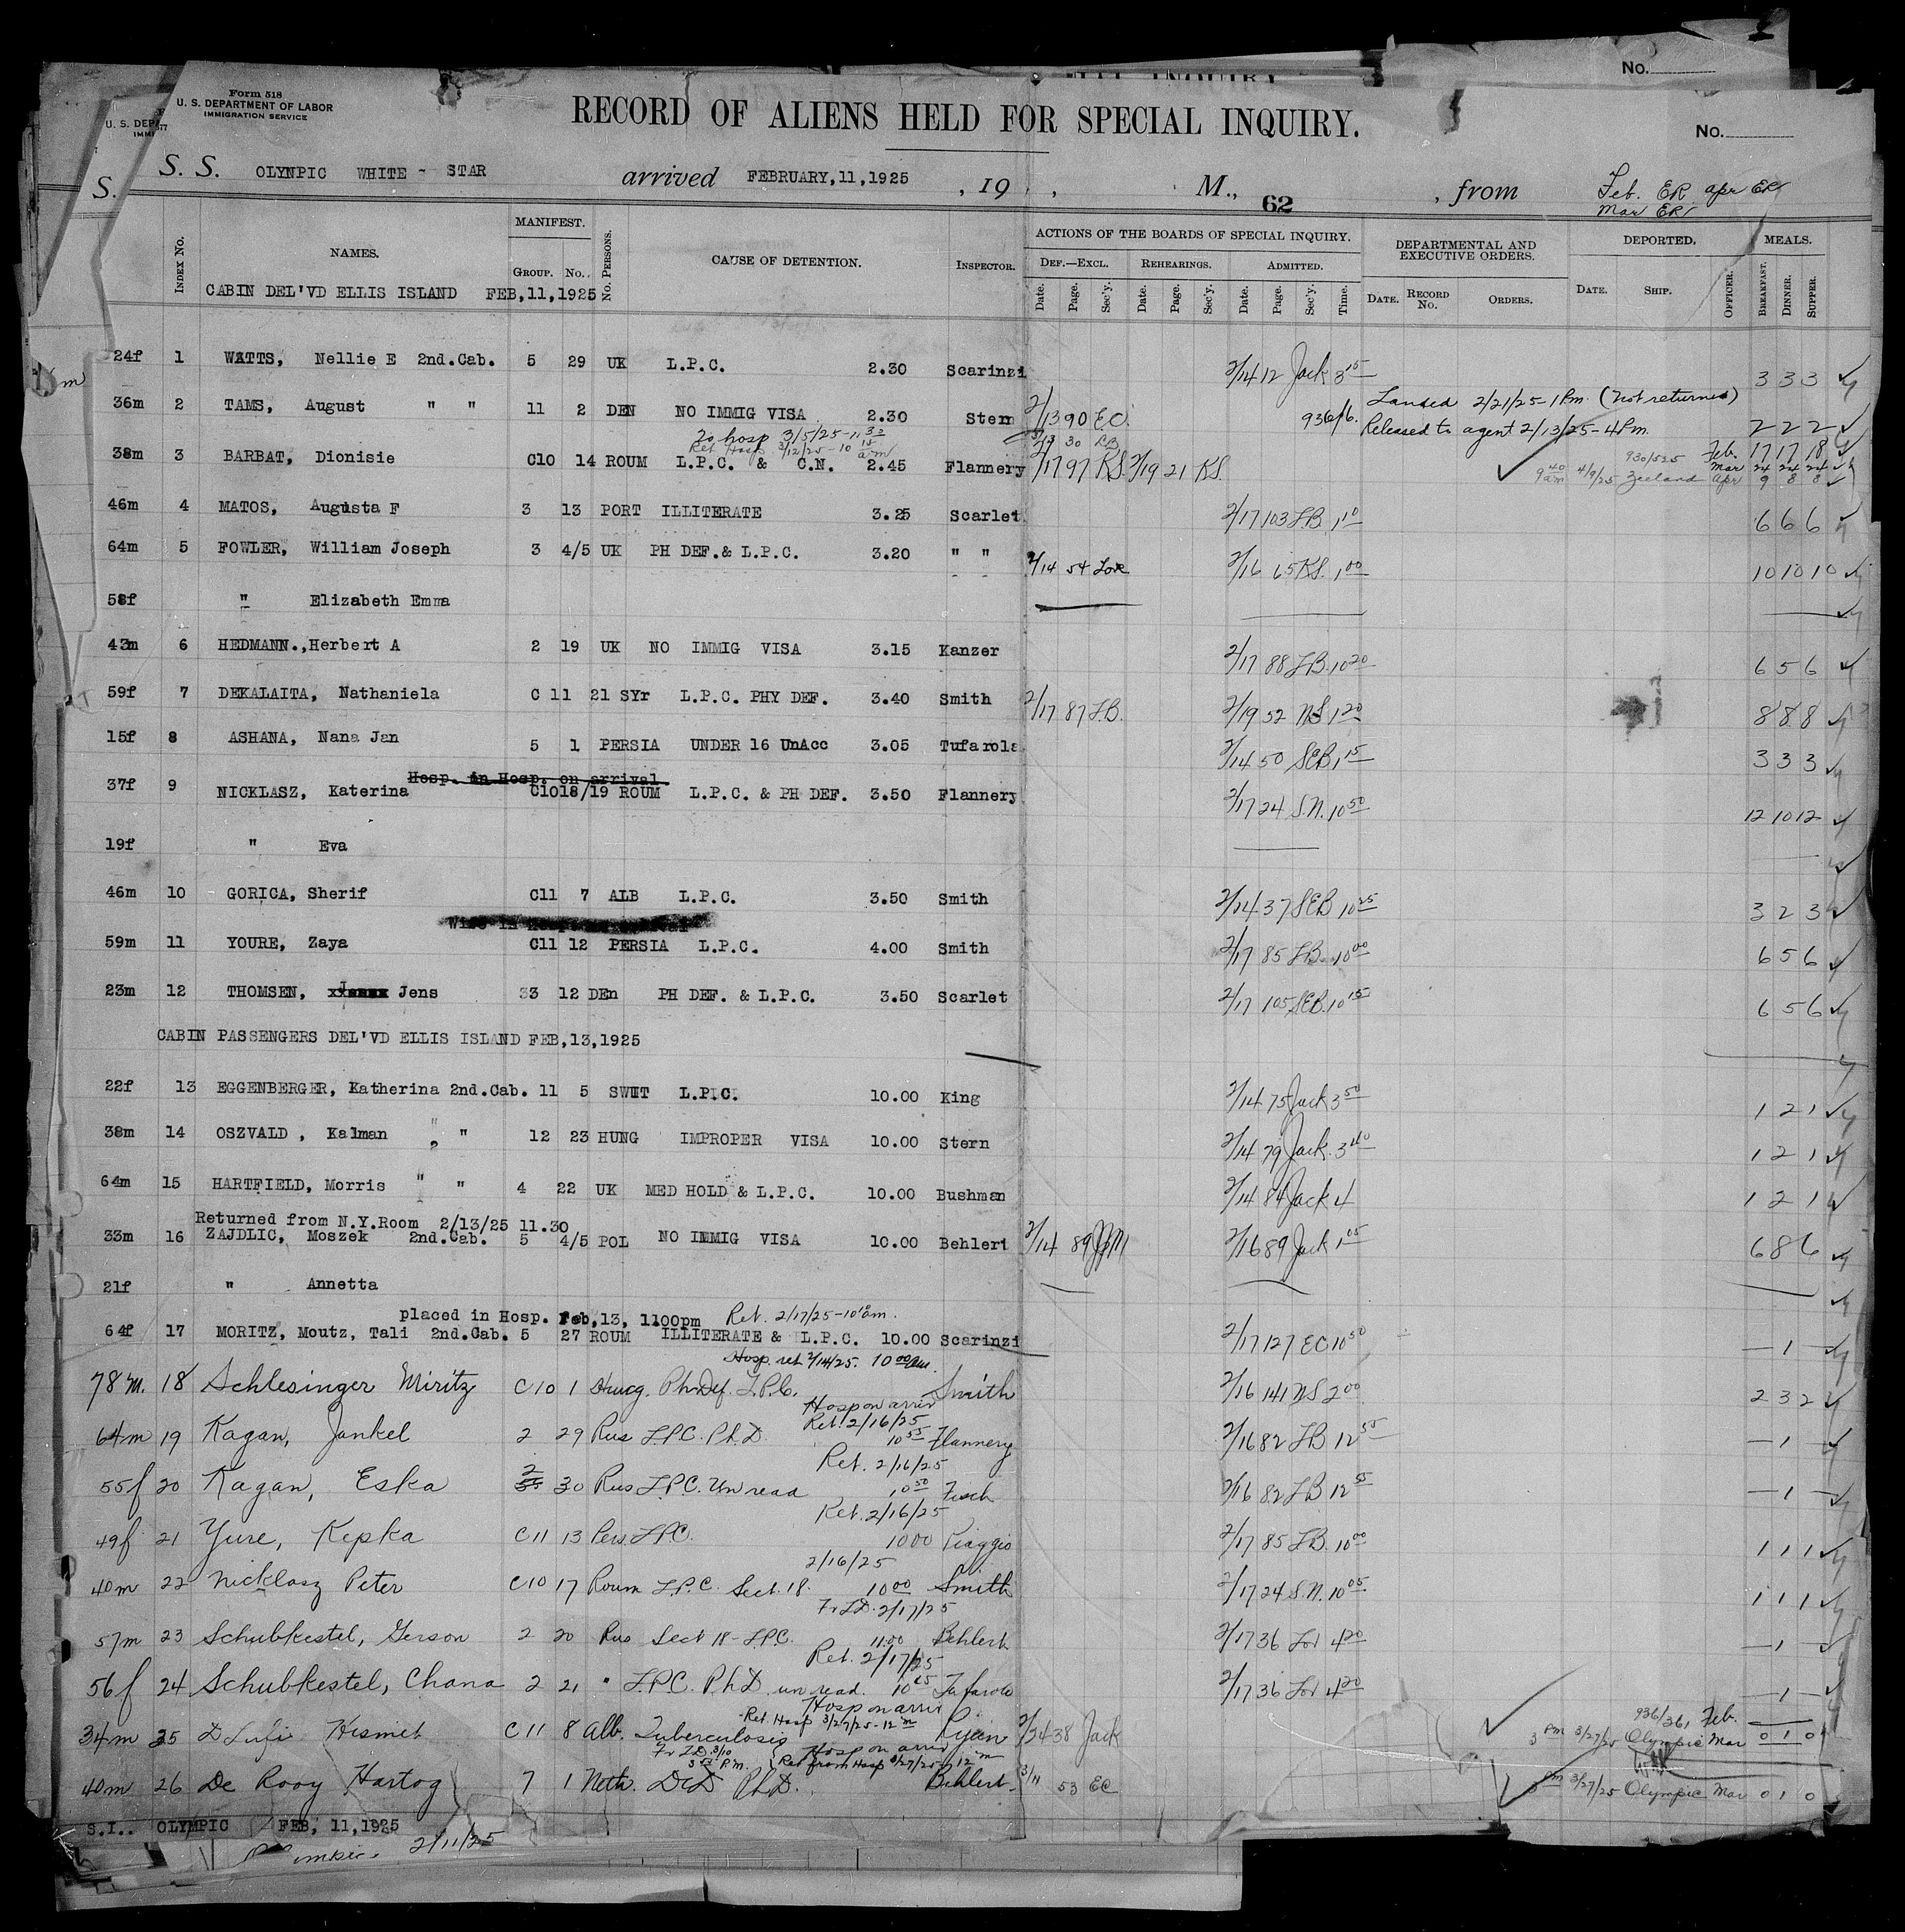 No.
Form 518
U. S. DEPARTMENT OF LABOR
IMMIGRATION SERVICE
RECORD OF ALIENS HELD FOR SPECIAL INQUIRY.
No.
S. S. OLYNPIC WHITE - STAR arrived FEBRUARY,11,1925 , 19 , M., 62 , from Feb. ER apr ER
Mar ER
INDEX No. NAMES. MANIFEST. GROUP. No. No. PERSONS. CAUSE OF DETENTION. INSPECTOR. ACTIONS OF THE BOARDS OF SPECIAL INQUIRY. DEPARTMENTAL AND EXECUTIVE ORDERS. DEPORTED. MEALS.
DEF.—EXCL. REHEARINGS. ADMITTED.
Date. Page. Sec'y. Date. Page. Sec'y. Date. Page. Sec'y. Time. DATE. RECORD No. ORDERS. DATE. SHIP. OFFICER. BREAKFAST. DINNER. SUPPER.
CABIN DEL'VD ELLIS ISLAND FEB,11,1925
24f 1 WATTS, Nellie E 2nd.Cab. 5 29 UK L.P.C. 2.30 Scarinzi 2/14 12 Jack 3 15 3 3 3
Landed 2/21/25-1 Pm. (Not returned)
36m 2 TAMS, August " " 11 2 DEN NO IMMIG VISA 2.30 Stern 2/13 90 EC. Released to agent 2/13/25-4Pm. 2 2 2
To hosp 3/5/25-11 30
Ret Hosp 3/12/25-10 15 am
38m 3 BARBAT, Dionisie C10 14 ROUM L.P.C. & C.N. 2.45 Flannery 2/17 97 KS 2/19 21 KS. 930/525 Feb. 17 17 18
Mar 24 24 24
9 40 am 4/9/25 Zeeland Apr 9 8 8
46m 4 MATOS, Augusta F 3 13 PORT ILLITERATE 3.25 Scarlet 2/17 103 LB 1 10 6 6 6
64m 5 FOWLER, William Joseph 3 4/5 UK PH DEF.& L.P.C. 3.20 " " 2/14 54 Lov 2/16 65 KS. 1 00 10 10 10
58f " Elizabeth Emma
43m 6 HEDMANN.,Herbert A 2 19 UK NO IMMIG VISA 3.15 Kanzer 2/17 88 LB. 10 20 6 5 6
59f 7 DEKALAITA, Nathaniela C 11 21 SYr L.P.C. PHY DEF. 3.40 Smith 2/17 87 LB. 2/19 52 NS 1 20 8 8 8
15f 8 ASHANA, Nana Jan 5 1 PERSIA UNDER 16 UnAcc 3.05 Tufarola 2/14 50 SEB 1 15 3 3 3
Hosp. in Hosp. on arrival
37f 9 NICKLASZ, Katerina C10 18/19 ROUM L.P.C. & PH DEF. 3.50 Flannery 2/17 24 S.N. 10 50 12 10 12
19f " Eva
46m 10 GORICA, Sherif C11 7 ALB L.P.C. 3.50 Smith 2/14 37 SEB 10 25 3 2 3
59m 11 YOURE, Zaya C11 12 PERSIA L.P.C. 4.00 Smith 2/17 85 LB. 10 00 6 5 6
23m 12 THOMSEN, Jens 33 12 DEn PH DEF. & L.P.C. 3.50 Scarlet 2/17 105 SEB. 10 15 6 5 6
CABIN PASSENGERS DEL'VD ELLIS ISLAND FEB,13,1925
22f 13 EGGENBERGER, Katherina 2nd.Cab. 11 5 SWIT L.P.C. 10.00 King 2/14 75 Jack 3 50 1 2 1
38m 14 OSZVALD , Kalman " " 12 23 HUNG IMPROPER VISA 10.00 Stern 2/14 79 Jack. 3 40 1 2 1
64m 15 HARTFIELD, Morris " " 4 22 UK MED HOLD & L.P.C. 10.00 Bushman 2/14 84 Jack 4 1 2 1
Returned from N.Y.Room 2/13/25 11.30
33m 16 ZAJDLIC, Moszek 2nd.Cab. 5 4/5 POL NO IMMIG VISA 10.00 Behlert 2/14 89 2/16 89 Jack 1 05 6 8 6
21f " Annetta
placed in Hosp. Feb,13, 1100pm Ret. 2/17/25-10 10 am.
64f 17 MORITZ, Moutz, Tali 2nd.Cab. 5 27 ROUM ILLITERATE & L.P.C. 10.00 Scarinzi 2/17 127 EC 10 50 — 1 —
Hosp. ret 2/14/25. 10 00 am.
78m. 18 Schlesinger Miritz C10 1 Hung. Ph.Def. L.P.C. Smith 2/16 141 NS 2 00 2 3 2
Hosp on arriv
Ret. 2/16/25
64m 19 Kagan, Jankel 2 29 Rus L.P.C. Ph.D. 10 55 Flannery 2/16 82 LB 12 55 — 1 —
Ret. 2/16/25
55f 20 Kagan, Eska 2 30 Rus L.P.C. Un read 10 50 Fisch 2/16 82 LB 12 55 — 1 —
Ret. 2/16/25
49f 21 Yure, Kepka C11 13 Pers. L.P.C. 1000 Piaggio 2/17 85 LB. 10 00 1 1 1
2/16/25
40m 22 Nicklasz Peter C10 17 Roum L.P.C. Sect. 18. 10 00 Smith 2/17 24 S.N. 10 05 1 1 1
Fr T.D. 2/17/25
57m 23 Schubkestel, Gerson 2 20 Rus Sect 18-L.P.C. 11.00 Behlert 2/17 36 Lov 4 20 — 1 —
Ret. 2/17/25
56f 24 Schubkestel, Chana 2 21 " L.P.C. Ph.D. un read. 10 25 Tufarolo 2/17 36 Lov 4 20 — 1 —
Hosp on arriv
Ret. Hosp 3/27/25-12 m 936/361 Feb.
34m 25 D Lufi Hismet C11 8 Alb. Tuberculosis Ryan 2/24 38 Jack 3 Pm 3/27/25 Olympic Mar 0 1 0
Fr T.D. 3/10 Hosp on arriv
Ret from Hosp 3/27/25 12 m
40m 26 De Rooy Hartog 7 1 Neth. DcD Ph.D. Behlert 3/11 53 EC 3 Pm 3/27/25 Olympic Mar 0 1 0
S.I.. OLYMPIC FEB, 11,1925
2/11/25